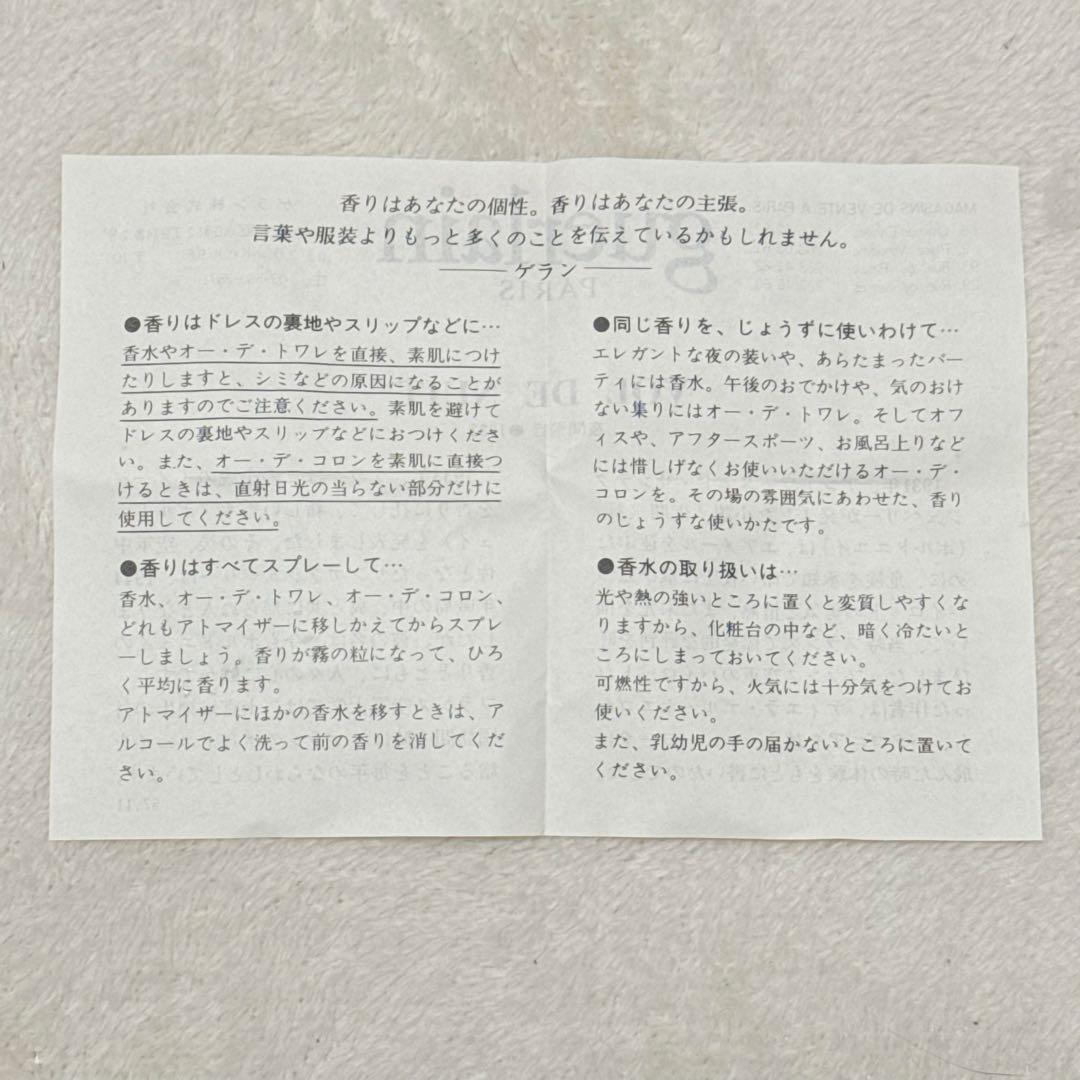 香りはあなたの個性。香りはあなたの主張。
言葉や服装よりもっと多くのことを伝えているかもしれません。
ゲラン
●香りはドレスの裏地やスリップなどに…
香水やオー・デ・トワレを直接、素肌につけ
たりしますと、シミなどの原因になることが
ありますのでご注意ください。素肌を避けて
ドレスの裏地やスリップなどにおつけくださ
い。また、オー・デ・コロンを素肌に直接つ
けるときは、直射日光の当らない部分だけに
使用してください。
●香りはすべてスプレーして…
香水、オー・デ・トワレ、オー・デ・コロン、
どれもアトマイザーに移しかえてからスプレ
ーしましょう。香りが霧の粒になって、ひろ
く平均に香ります。
アトマイザーにほかの香水を移すときは、ア
ルコールでよく洗って前の香りを消してくだ
さい。
●同じ香りを、じょうずに使いわけて…
エレガントな夜の装いや、あらたまったパー
ティには香水。午後のおでかけや、気のおけ
ない集りにはオー・デ・トワレ。そしてオフ
ィスや、アフタースポーツ、お風呂上りなど
には惜しげなくお使いいただけるオー・デ・
コロンを。その場の雰囲気にあわせた、香り
のじょうずな使いかたです。
●香水の取り扱いは…
光や熱の強いところに置くと変質しやすくな
りますから、化粧台の中など、暗く冷たいと
ころにしまっておいてください。
可燃性ですから、火気には十分気をつけてお
使いください。
また、乳幼児の手の届かないところに置いて
ください。